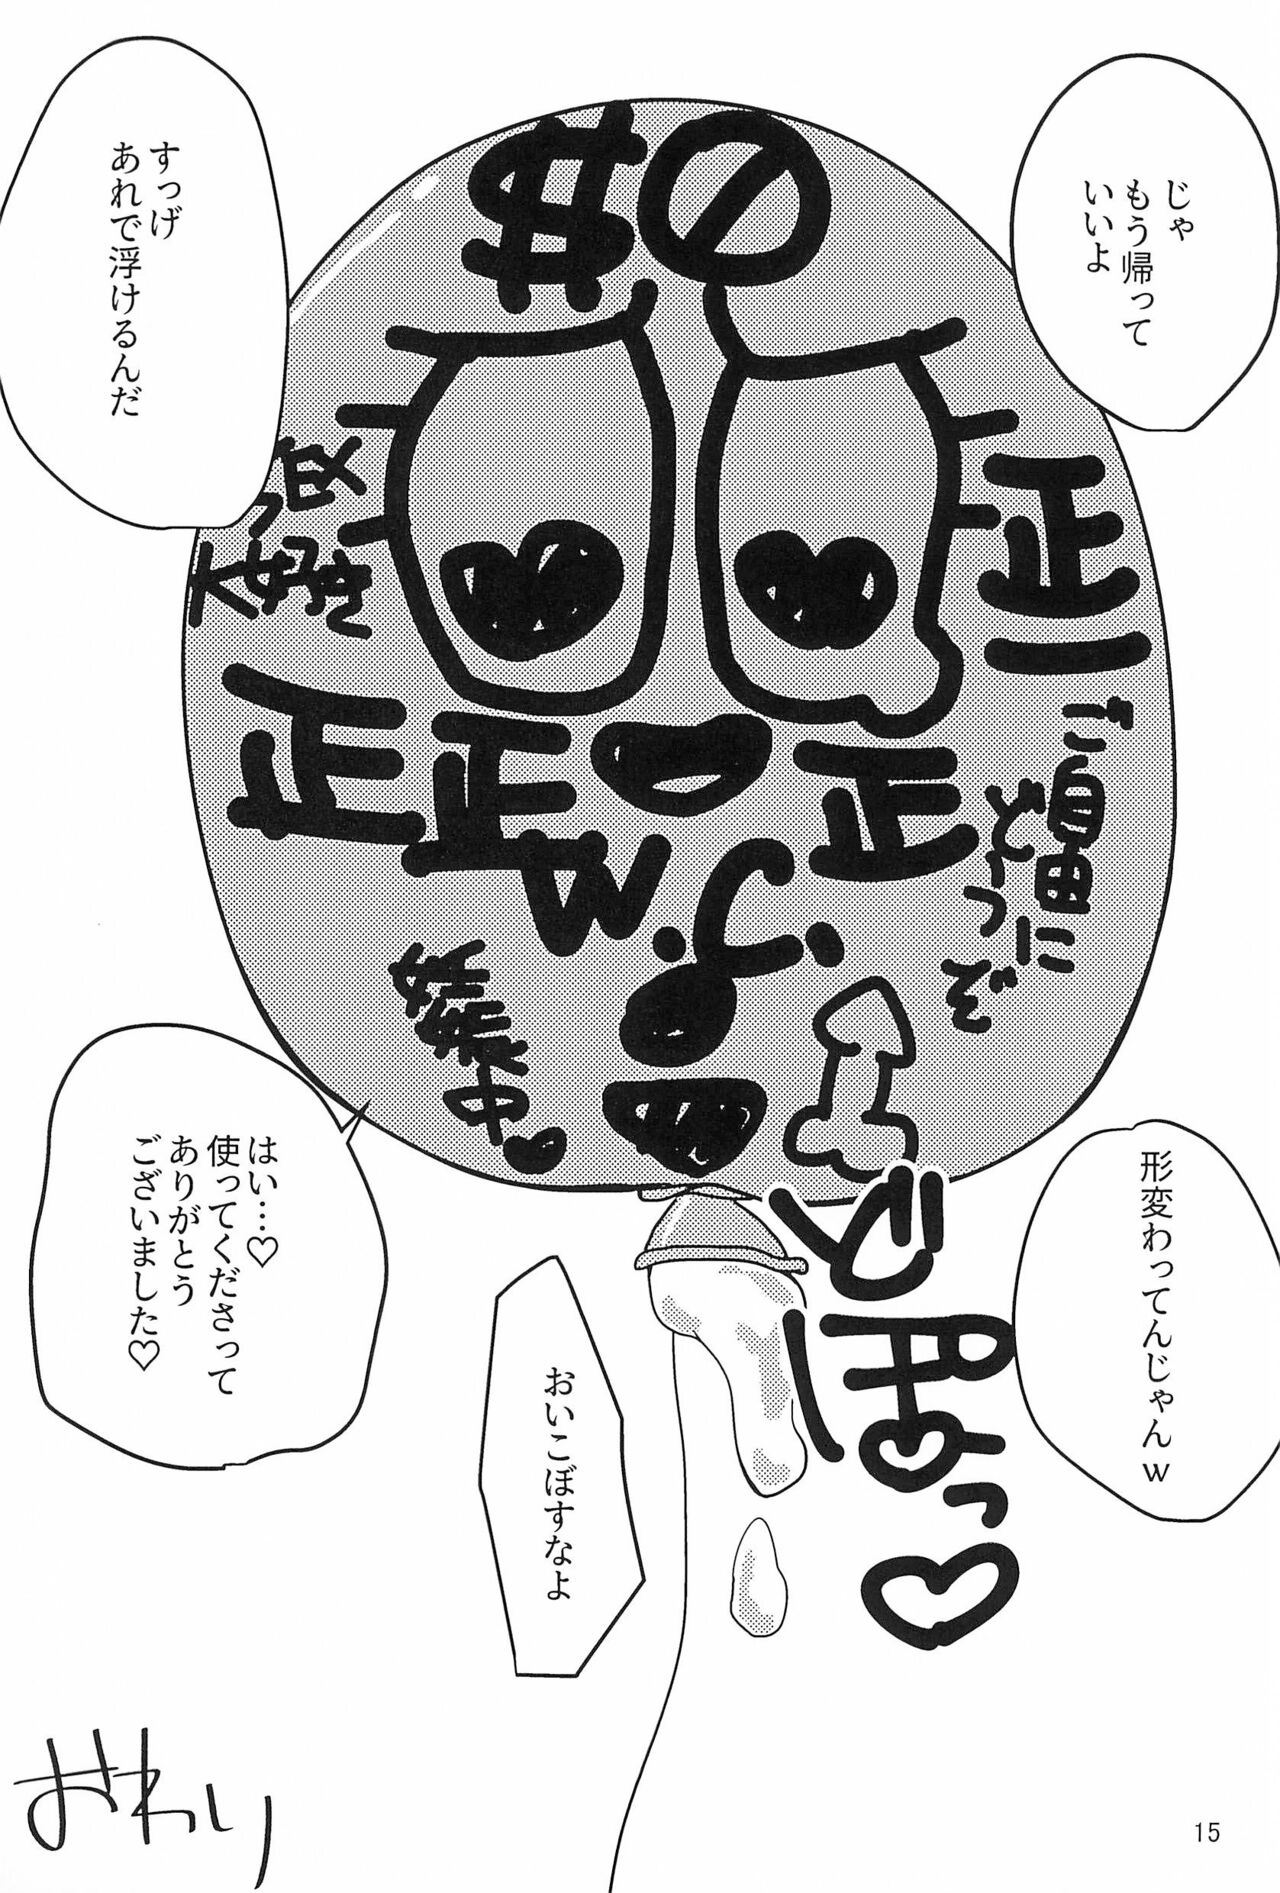 じゃ
もう帰って
いいよ
すっげ
あれで浮けるんだ
$0
大好き
正
二
正
正
正
ご自由に
どうぞ
中♥
形変わってんじゃんw
はい…♡
使ってくださって
ありがとう
ございました♡
おいこぼすなよ
っ♡
おわり
15